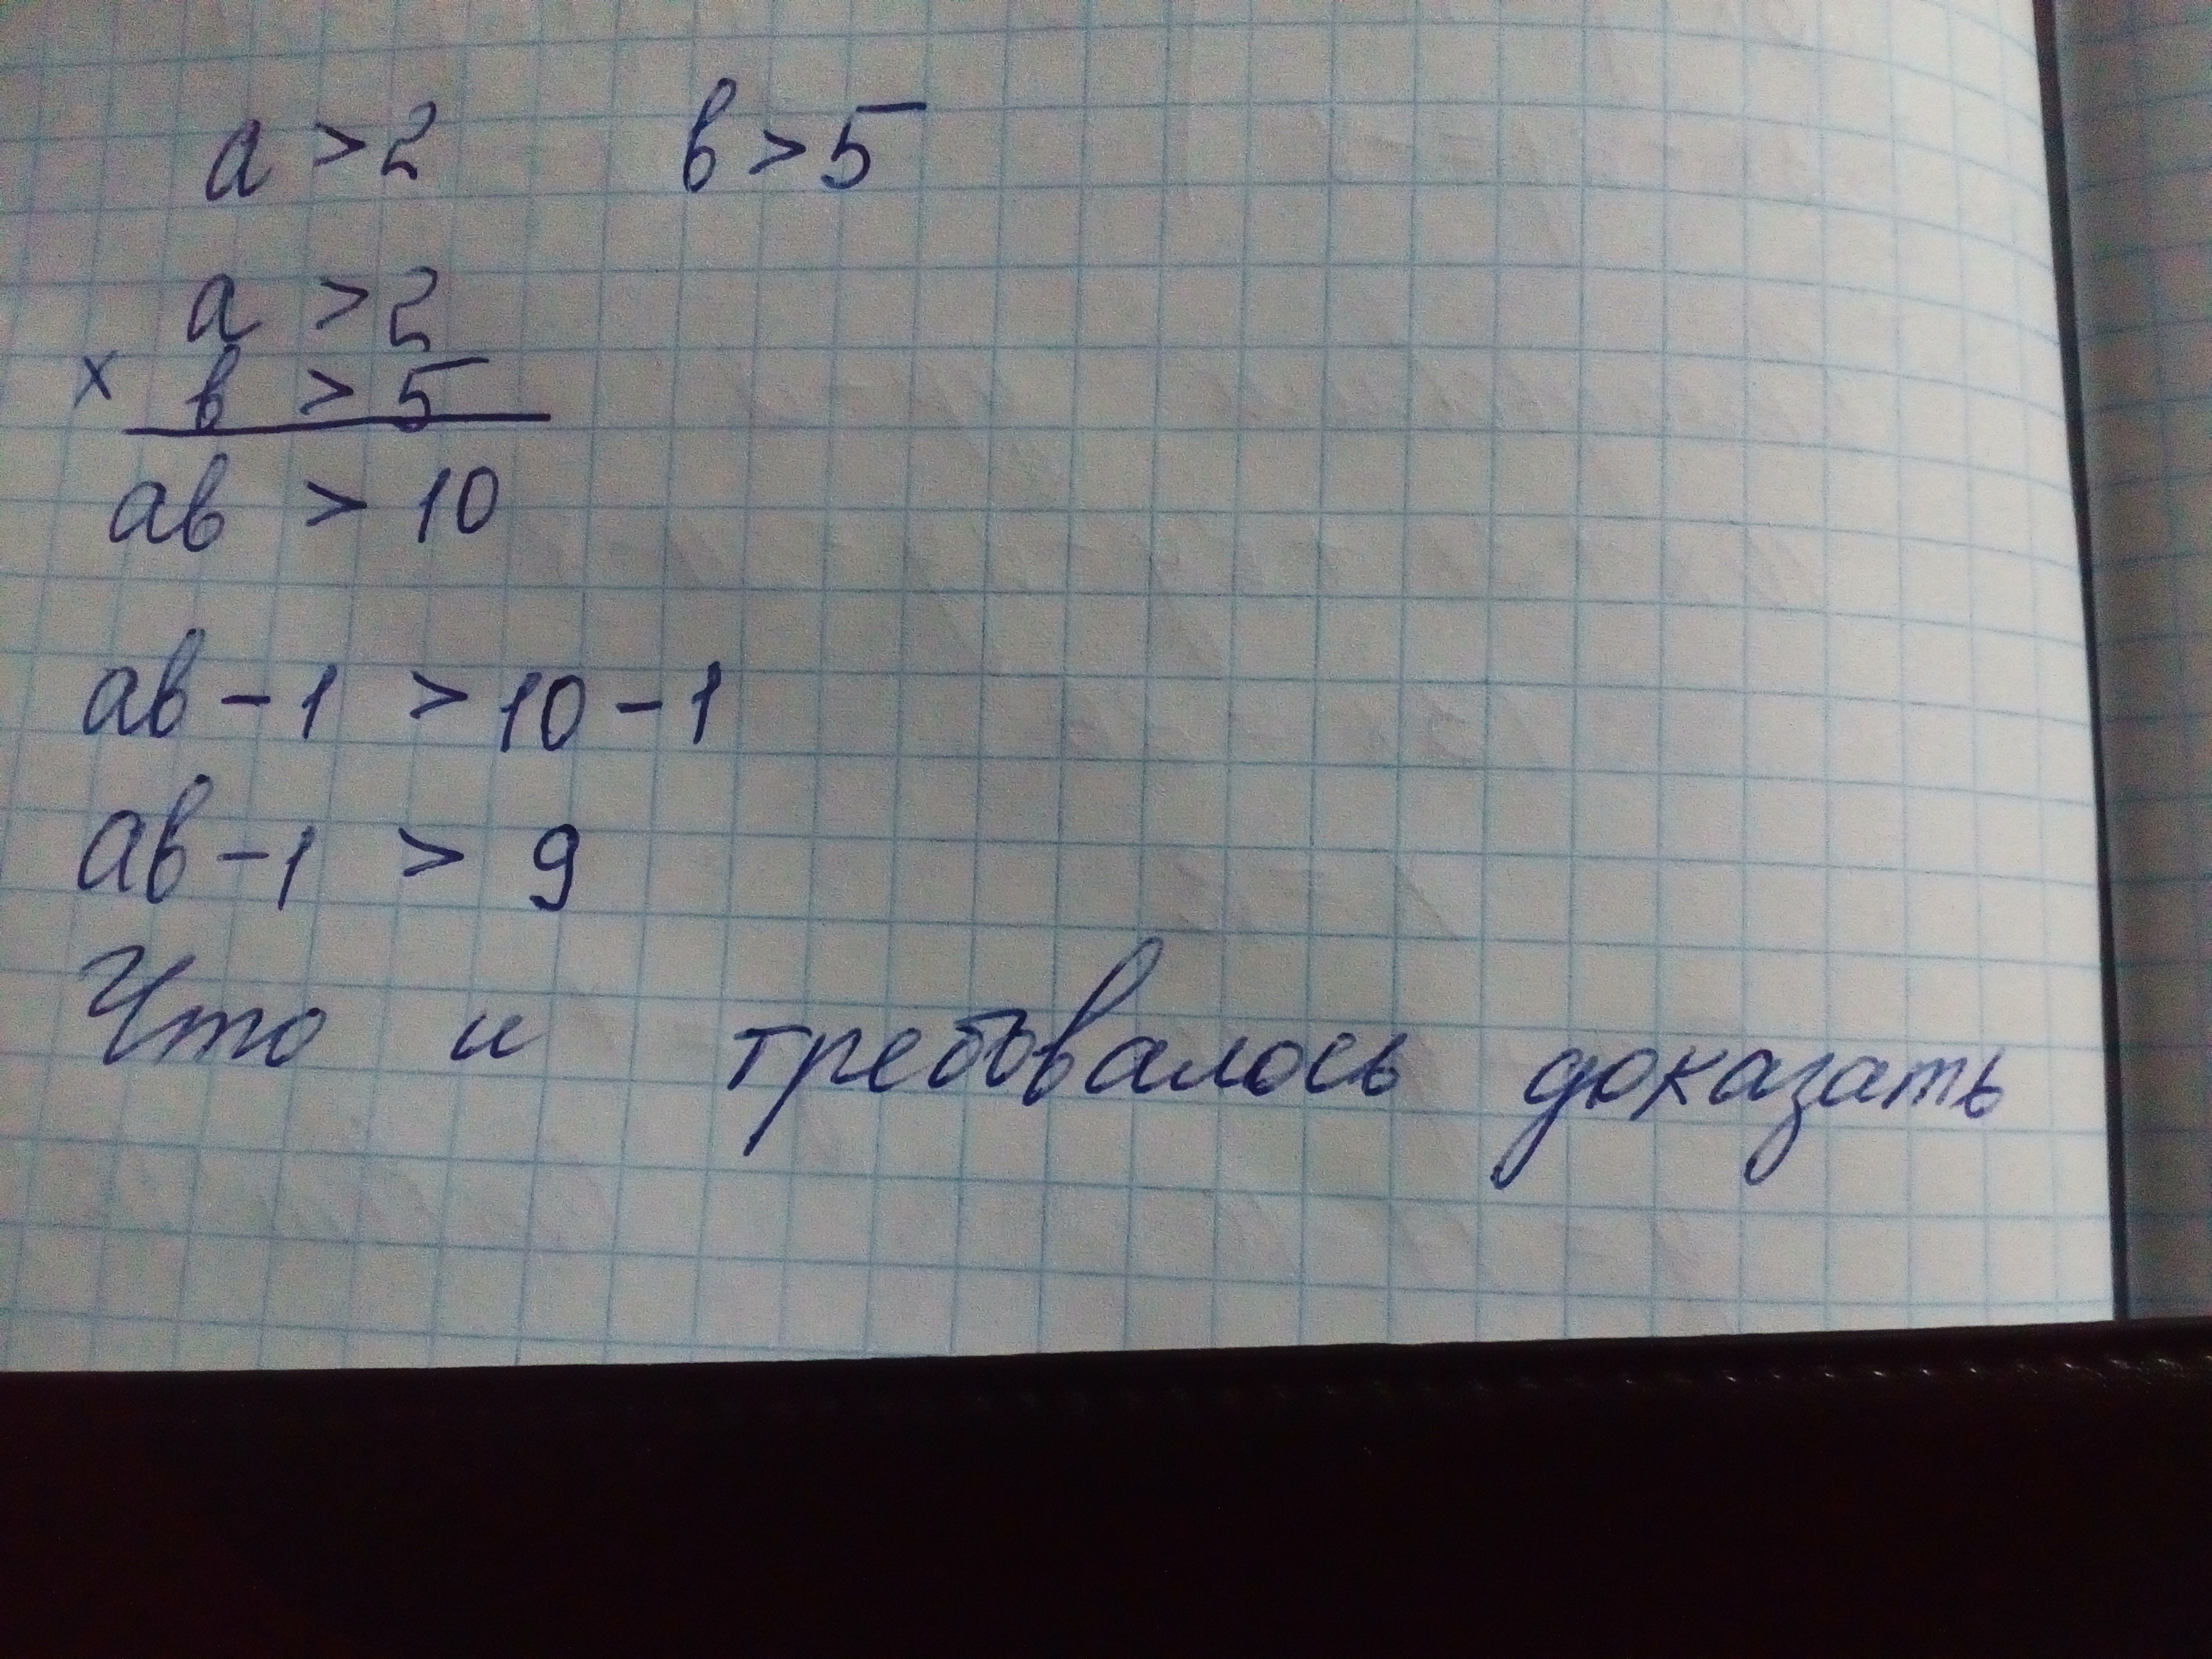 a > 2 в > 5
a > 2
× в > 5
aв > 10
aв - 1 > 10 - 1
aв - 1 > 9
Что и требовалось доказать